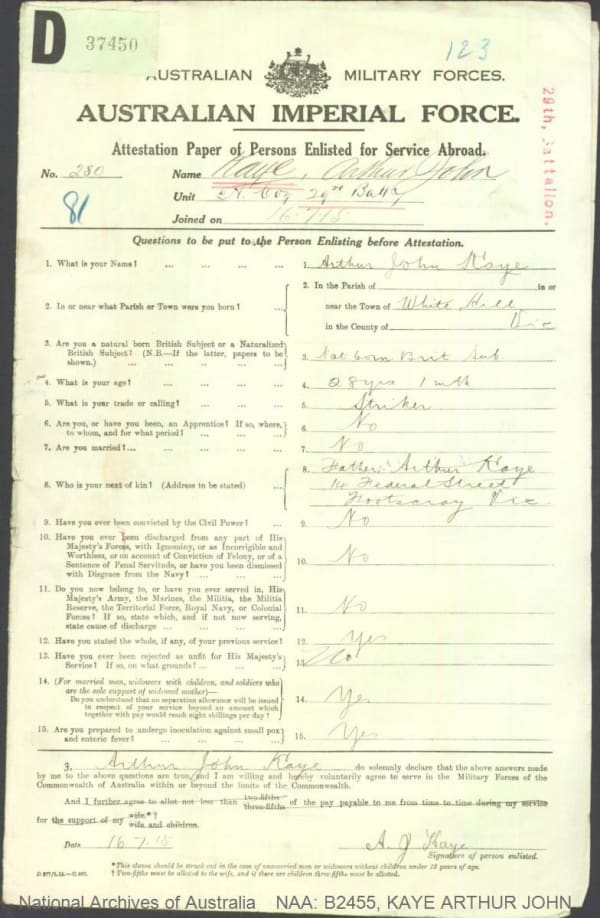 D 37450
123
AUSTRALIAN MILITARY FORCES.
AUSTRALIAN IMPERIAL FORCE.
29th, Battalion.
Attestation Paper of Persons Enlisted for Service Abroad.
No. 280 Name Kaye, Arthur John
81 Unit A. Coy 29th Battn
Joined on 16.7.15
Questions to be put to the Person Enlisting before Attestation.
1. What is your Name? ... ... ... ... 1. Arthur John Kaye
2. In or near what Parish or Town were you born? ... 2. In the Parish of in or
near the Town of White Hill
in the County of Vic
3. Are you a natural born British Subject or a Naturalized
British Subject? (N.B.—If the latter, papers to be
shown.) ... ... ... ... 3. Nat born Brit Sub
4. What is your age? ... ... ... ... 4. 28 yrs 1 mth
5. What is your trade or calling? ... ... ... 5. Striker
6. Are you, or have you been, an Apprentice? If so, where,
to whom, and for what period? ... ... ... 6. No
7. Are you married?... ... ... ... ... 7. No
8. Who is your next of kin? (Address to be stated) ... 8. Father Arthur Kaye
14 Federal Street
Footscray Vic
9. Have you ever been convicted by the Civil Power? ... 9. No
10. Have you ever been discharged from any part of His
Majesty's Forces, with Ignominy, or as Incorrigible and
Worthless, or on account of Conviction of Felony, or of a
Sentence of Penal Servitude, or have you been dismissed
with Disgrace from the Navy? ... ... ... 10. No
11. Do you now belong to, or have you ever served in, His
Majesty's Army, the Marines, the Militia, the Militia
Reserve, the Territorial Force, Royal Navy, or Colonial
Forces? If so, state which, and if not now serving,
state cause of discharge ... ... ... ... 11. No
12. Have you stated the whole, if any, of your previous service? 12. Yes
13. Have you ever been rejected as unfit for His Majesty's
Service? If so, on what grounds? ... ... ... 13. No
14. (For married men, widowers with children, and soldiers who
are the sole support of widowed mother)—
Do you understand that no separation allowance will be issued
in respect of your service beyond an amount which
together with pay would reach eight shillings per day? 14. Yes
15. Are you prepared to undergo inoculation against small pox
and enteric fever? ... ... ... ... 15. Yes
I, Arthur John Kaye do solemnly declare that the above answers made
by me to the above questions are true, and I am willing and hereby voluntarily agree to serve in the Military Forces of the
Commonwealth of Australia within or beyond the limits of the Commonwealth.
And I further agree to allot not less than two-fifths three-fifths of the pay payable to me from time to time during my service
for the support of my wife.*†
wife and children.
Date 16.7.15 A. J Kaye
Signature of person enlisted.
*This clause should be struck out in the case of unmarried men or widowers without children under 18 years of age.
† Two-fifths must be allotted to the wife, and if there are children three-fifths must be allotted.
National Archives of Australia NAA: B2455, KAYE ARTHUR JOHN